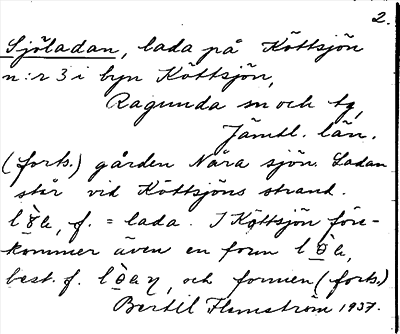 2.
Sjöladan, lada på Köttsjön
n:r 3 i byn Köttsjön,
Ragunda sn och tg,
Jämtl. län.
(forts.) gården Nära sjön. Ladan
står vid Köttsjöns strand.
f. = lada. I Köttsjön före-
kommer även en form
best. f. och formen (forts.)
Bertil Flemström 1937.